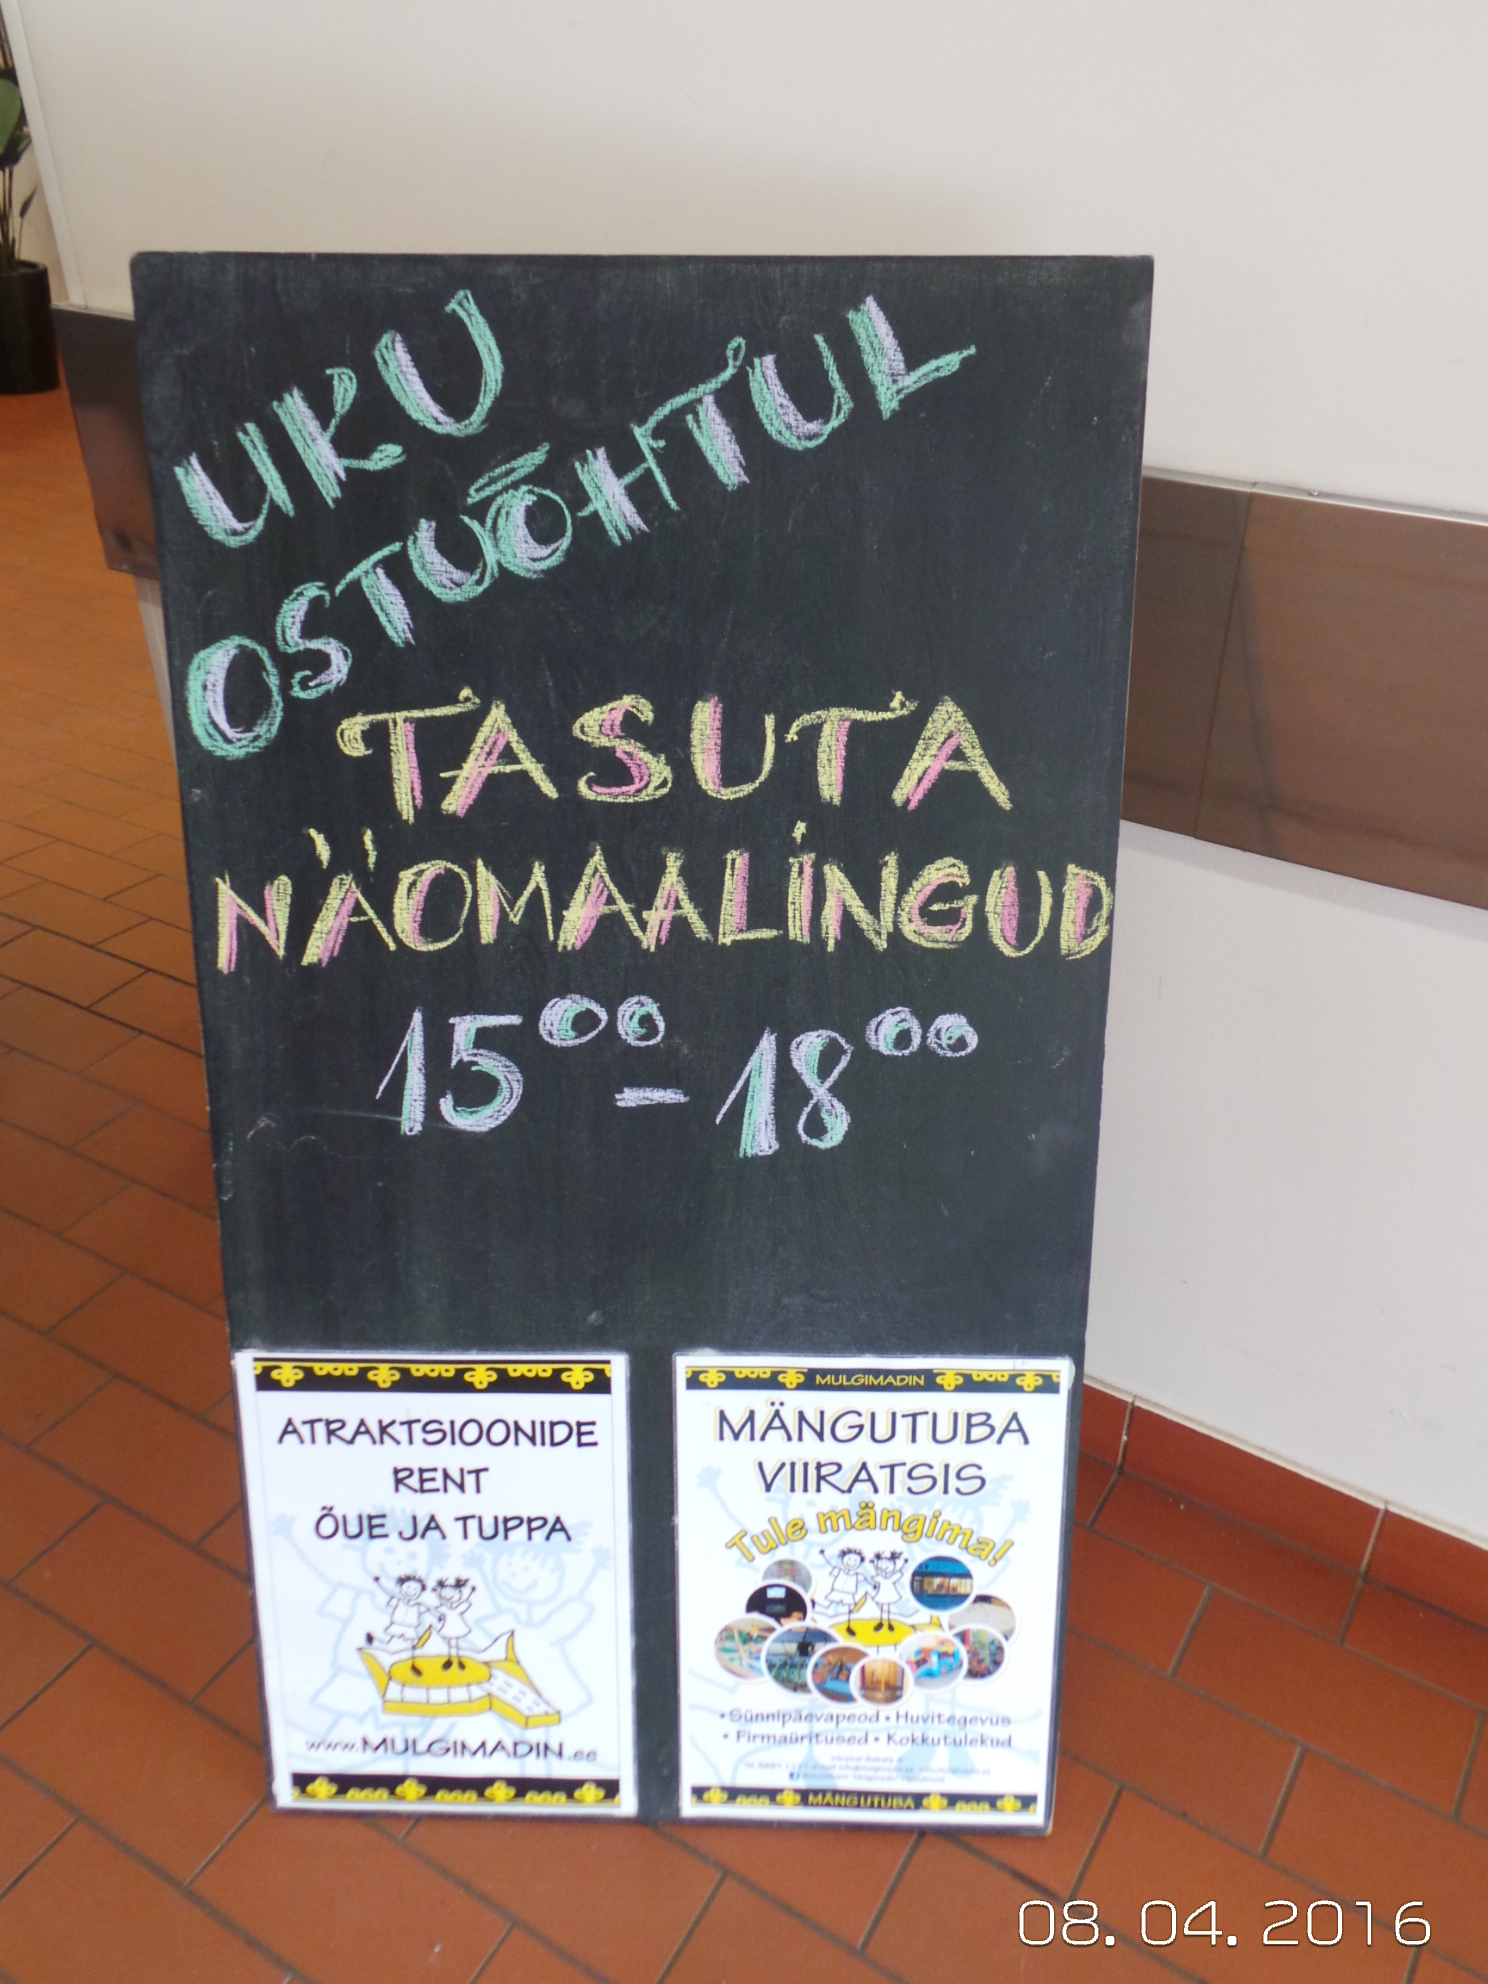 UKU
OSTUÕHTUL
TASUTA
NÄOMAALINGUD
15⁰⁰ - 18⁰⁰
ATRAKTSIOONIDE
RENT
ÕUE JA TUPPA
www.MULGIMADIN.ee
MULGIMADIN
MÄNGUTUBA
VIIRATSIS
Tule mängima!
• Sünnipäevapeod • Huvitegevus
• Firmaüritused • Kokkutulekud
MÄNGUTUBA
08. 04. 2016